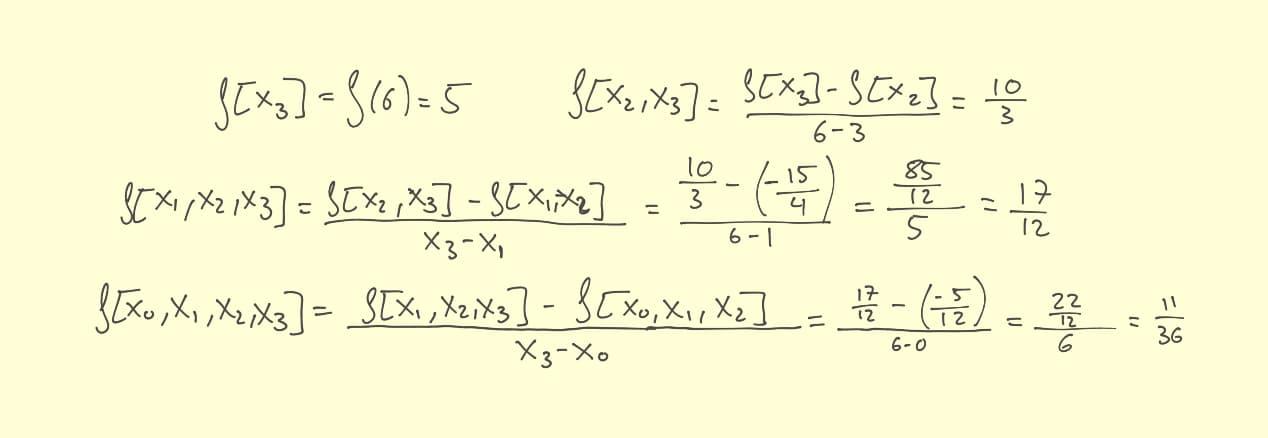 f[x₃] = f(6) = 5 f[x₂,x₃] = (f[x₃] - f[x₂])/(6-3) = 10/3
f[x₁,x₂,x₃] = (f[x₂,x₃] - f[x₁,x₂])/(x₃-x₁) = (10/3 - (-15/4))/(6-1) = (85/12)/5 = 17/12
f[x₀,x₁,x₂,x₃] = (f[x₁,x₂,x₃] - f[x₀,x₁,x₂])/(x₃-x₀) = (17/12 - (-5/12))/(6-0) = (22/12)/6 = 11/36